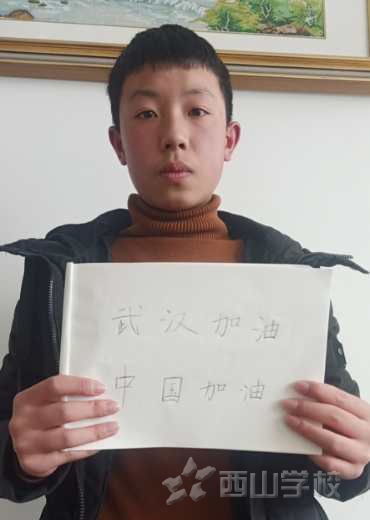 武汉加油
中国加油
西山学校